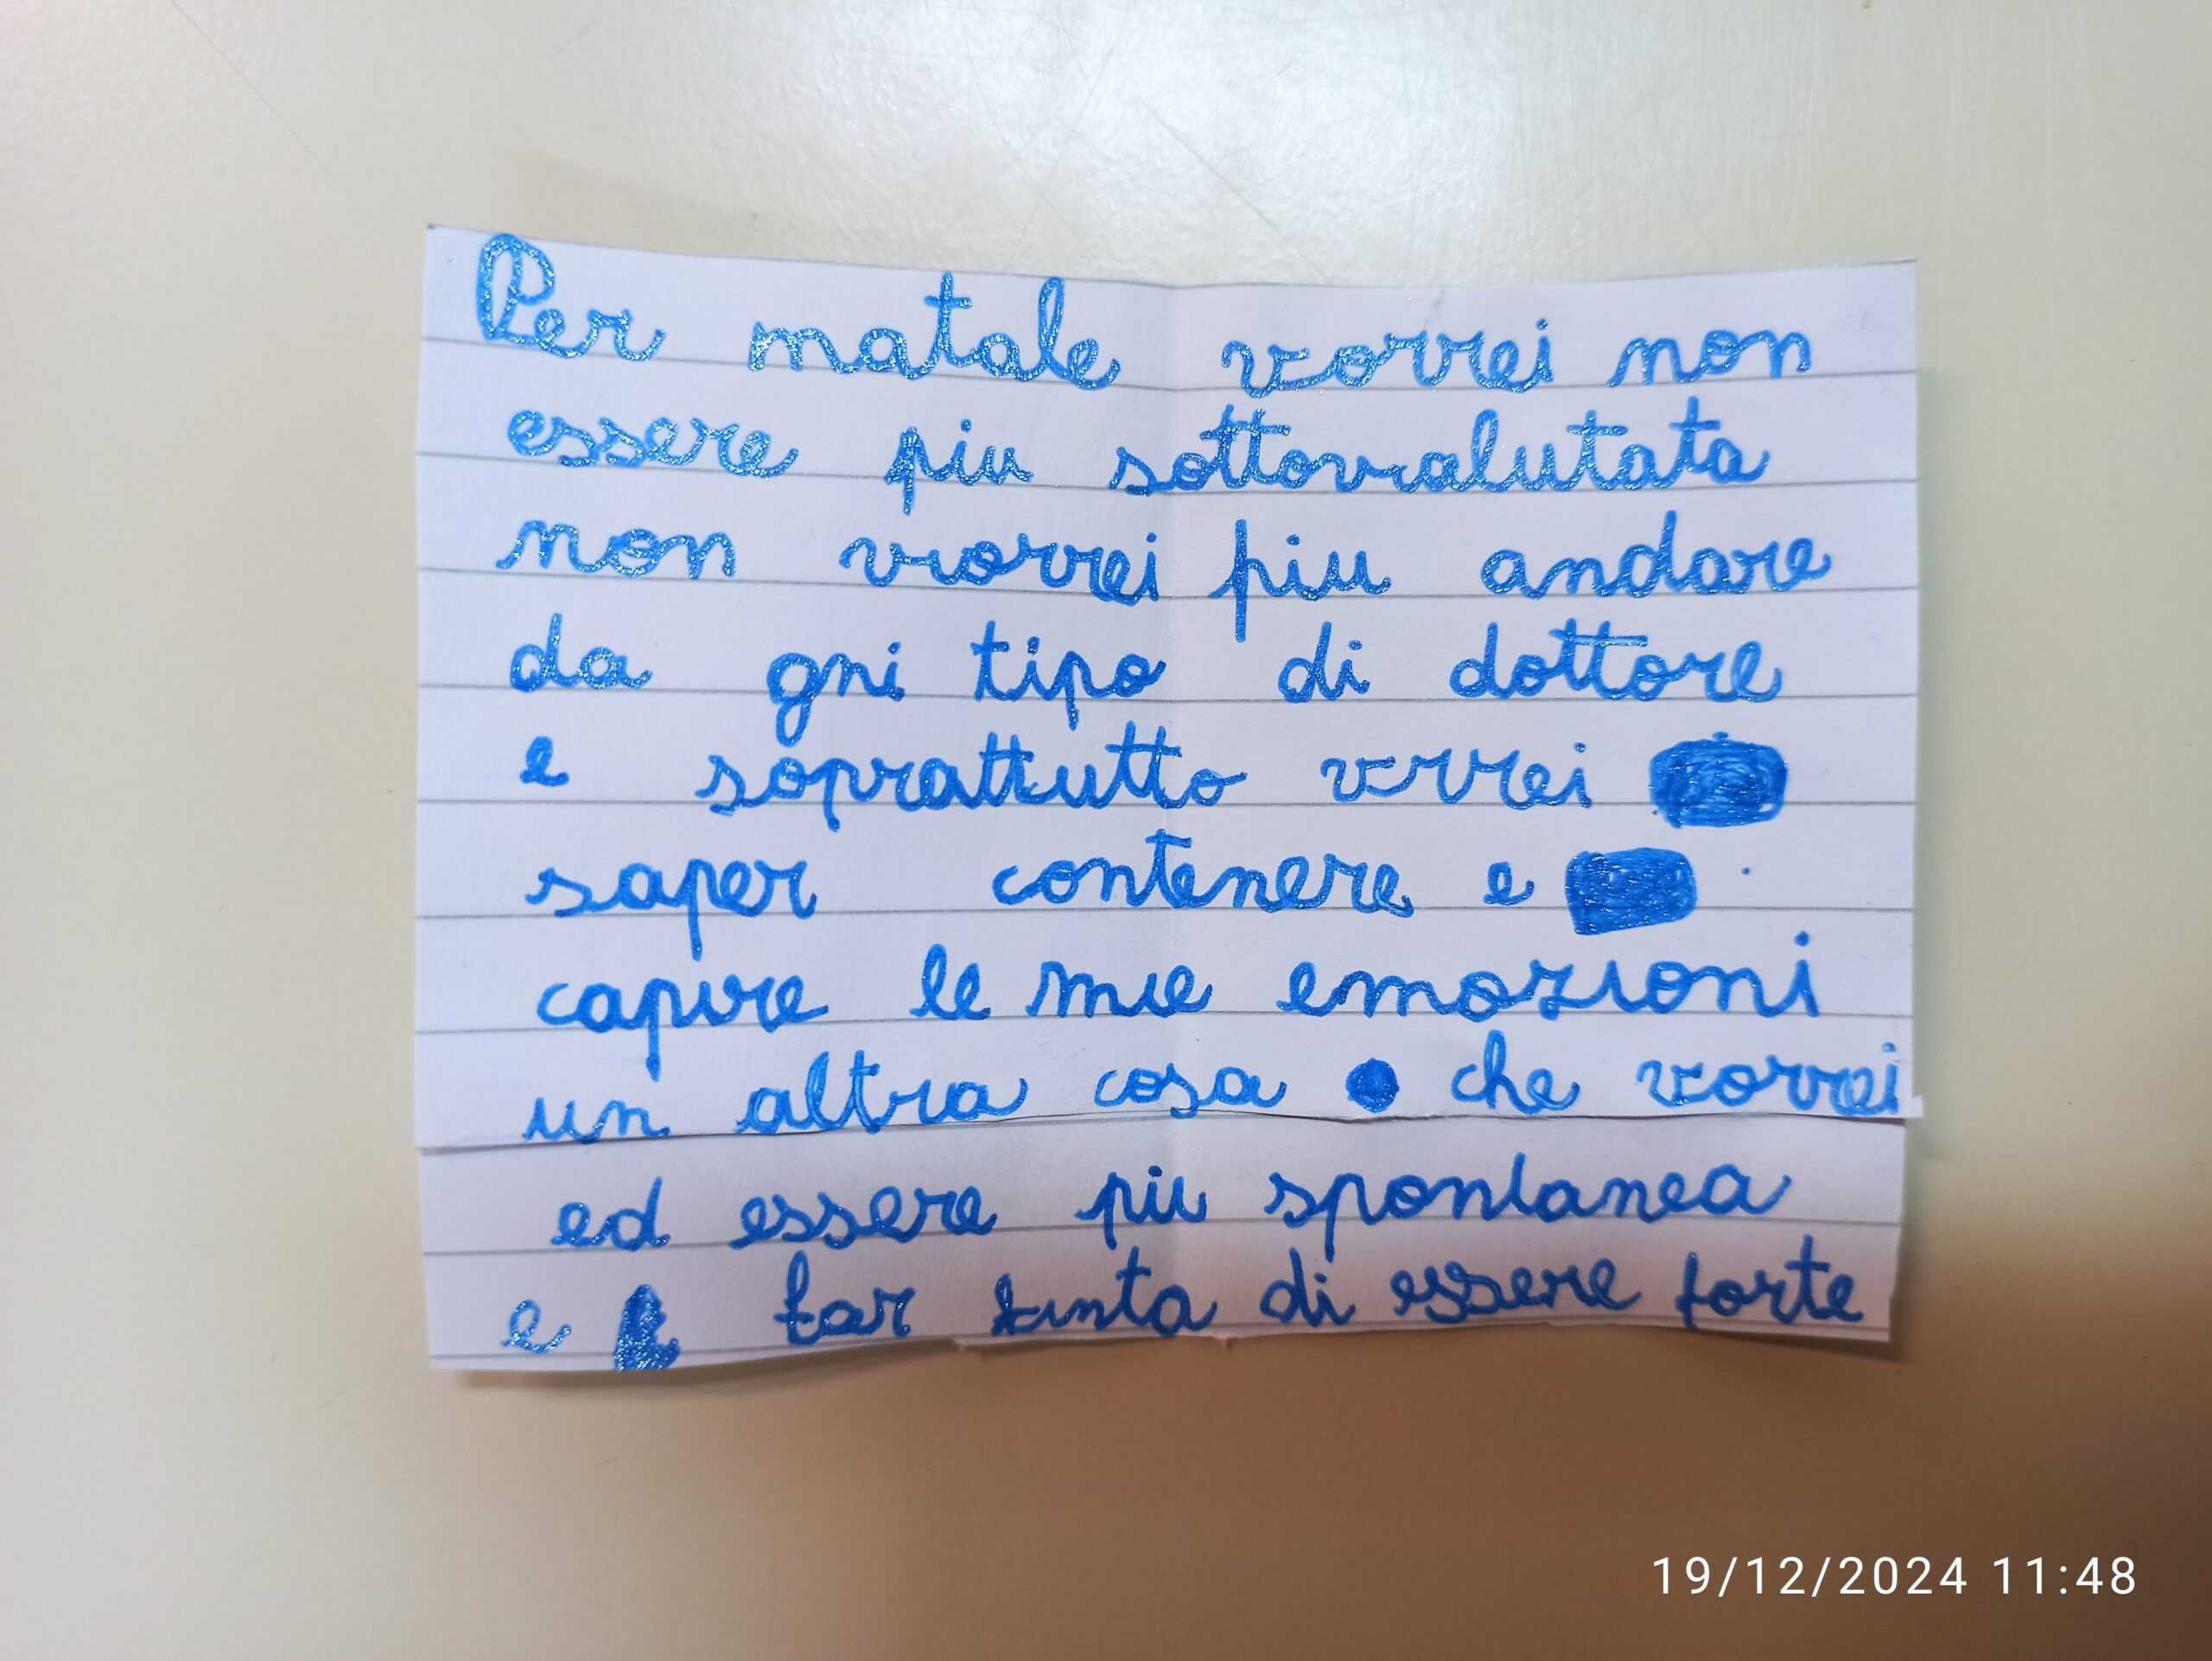 Per natale vorrei non
essere piu sottovralutata
non vrorrei piu andare
da gni tipo di dottore
e soprattutto vrrei
saper contenere e
capire le mie emozioni
un altra cosa che vorrei
ed essere piu spontanea
e far finta di essere forte
19/12/2024 11:48